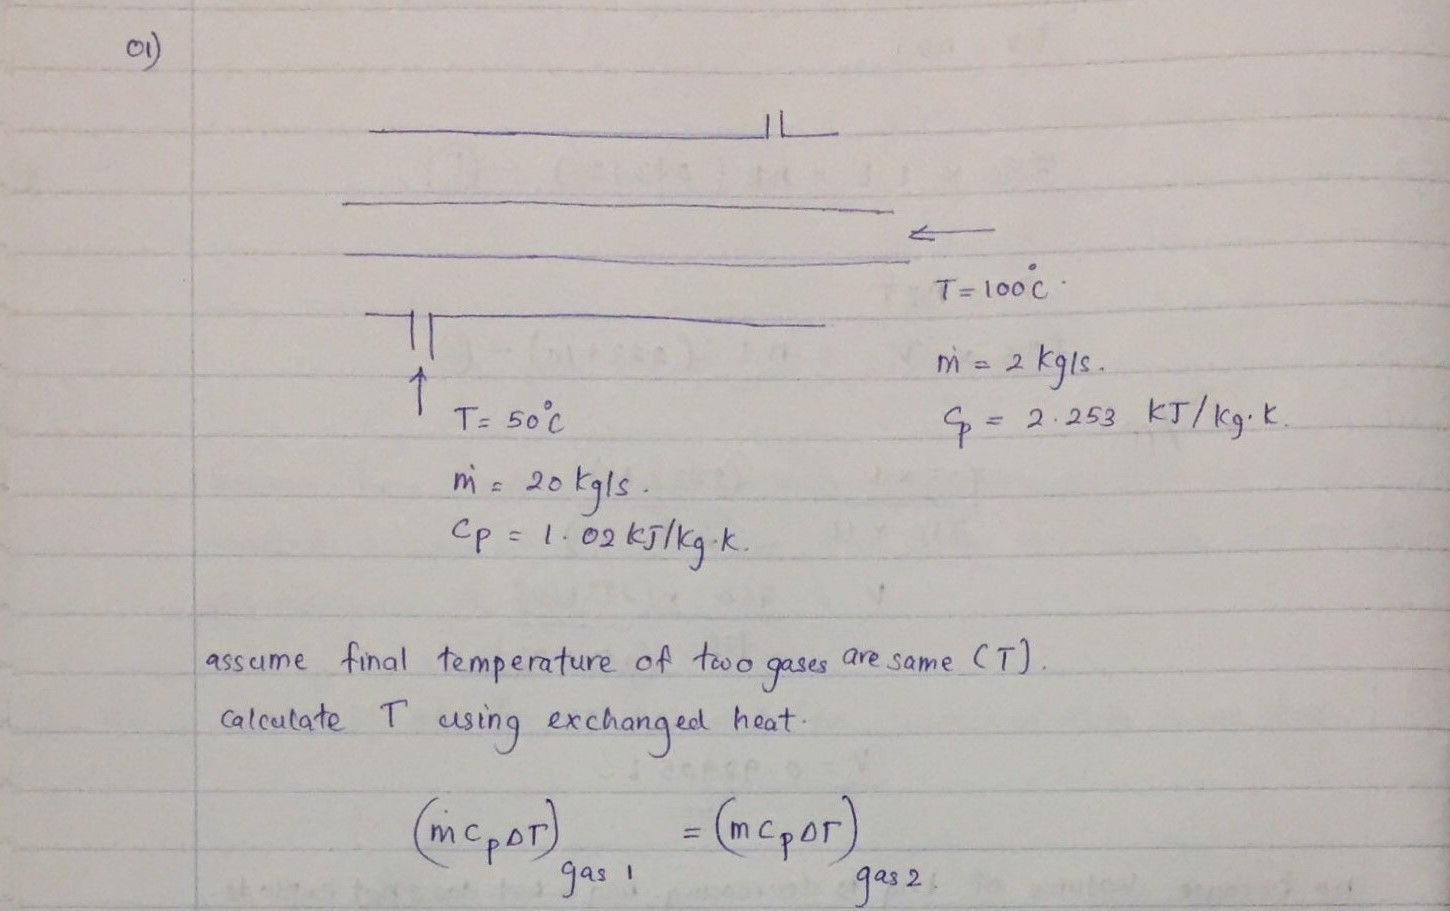 01)
T = 100°C
ṁ = 2 kg/s.
Cp = 2.253 KJ/kg.K.
T = 50°C
ṁ = 20 kg/s.
Cp = 1.02 kJ/kg.k.
assume final temperature of two gases are same (T).
calculate T using exchanged heat.
(ṁ Cp ΔT) gas 1 = (m Cp ΔT) gas 2.